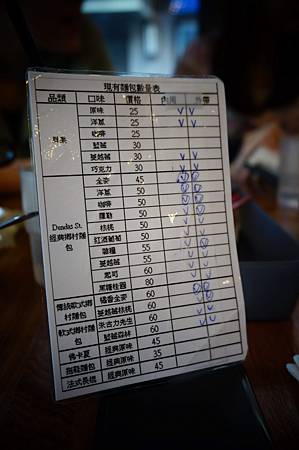 現有麵包數量表
品類 口味 價格 內用 外帶
原味 25 V V
洋蔥 25 V V
咖啡 25
貝果
藍莓 30
蔓越莓 30
巧克力 30
全麥 45
洋蔥 50
咖啡 50
羅勒 50
Dundas St.
經典鄉村麵
包
核桃 50
紅酒葡萄 50
雜糧 55
蔓越莓 55
起司 60
黑糖桂圓 80
傳統歐式鄉
村麵包
橘香全麥 60
蔓越莓核桃 60
軟式鄉村麵
包
朱古力先生 60
藍莓森林 60
佛卡夏 經典原味 45
拖鞋麵包 經典原味 35
法式長棍 經典原味 45